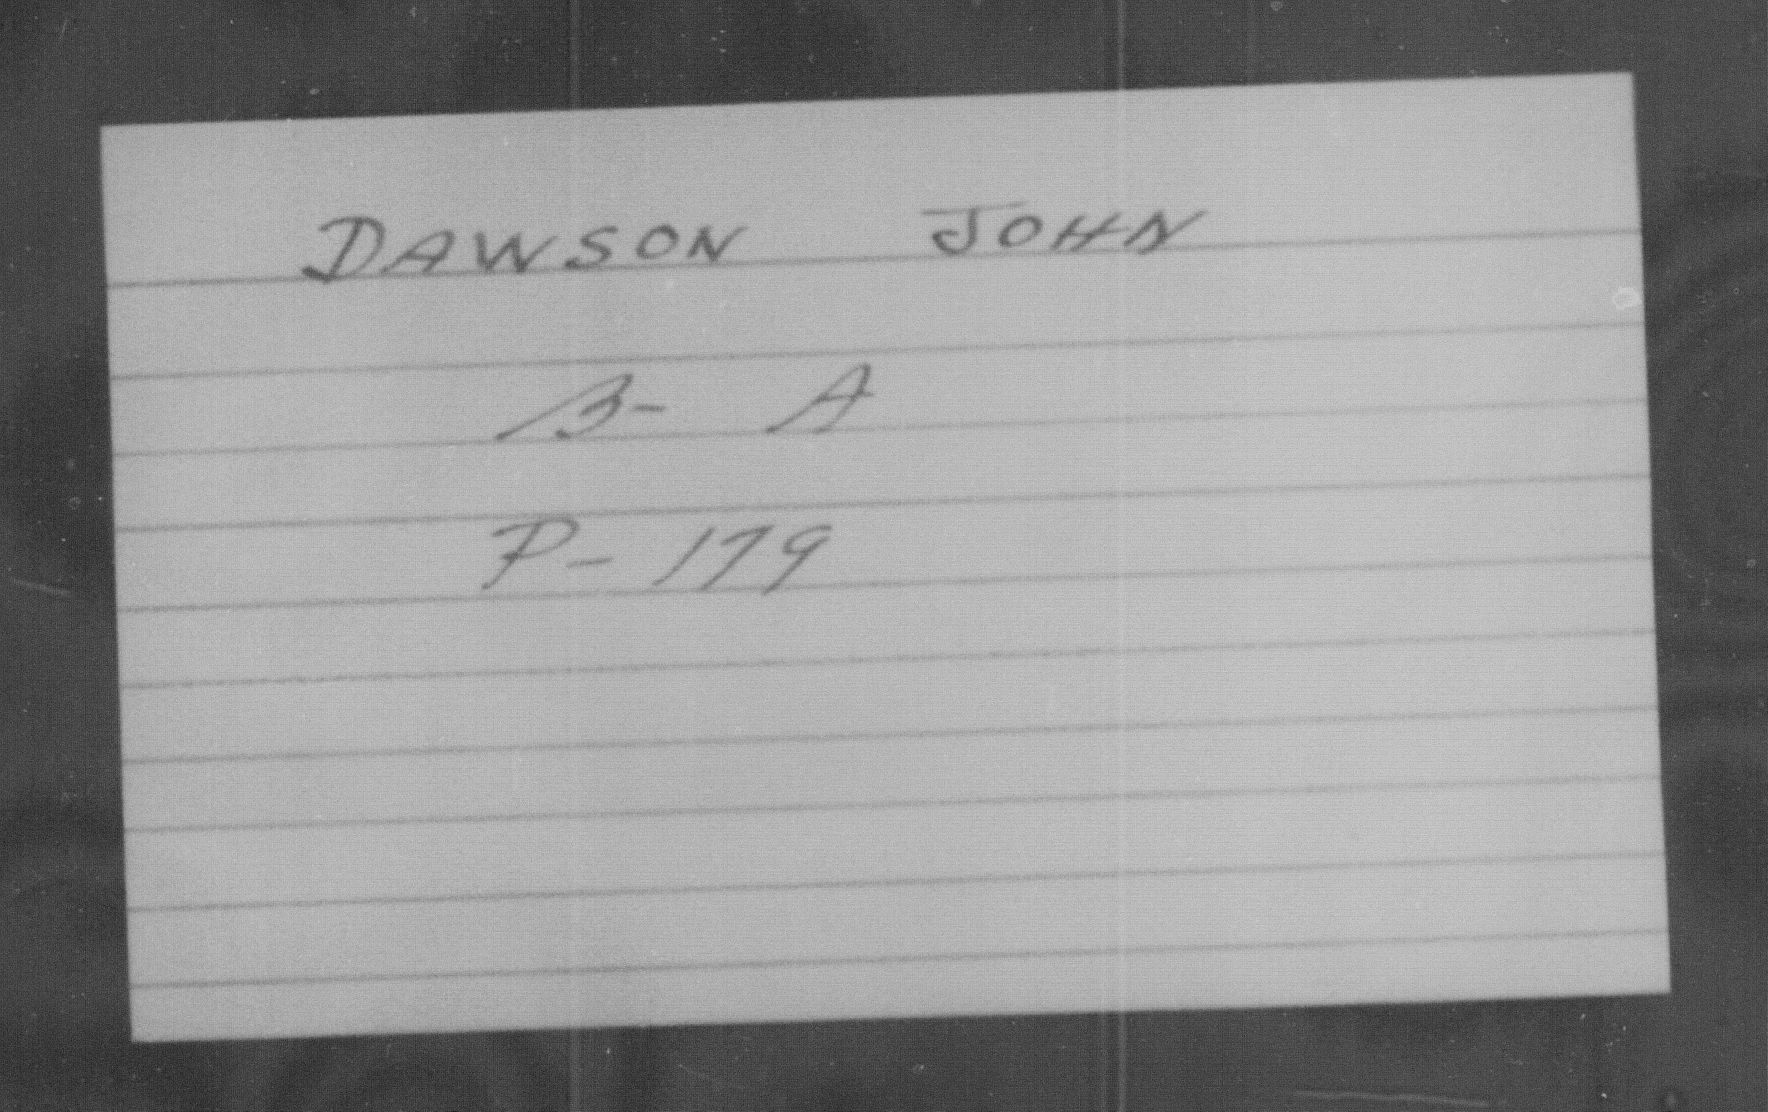 DAWSON JOHN
B- A
P- 179